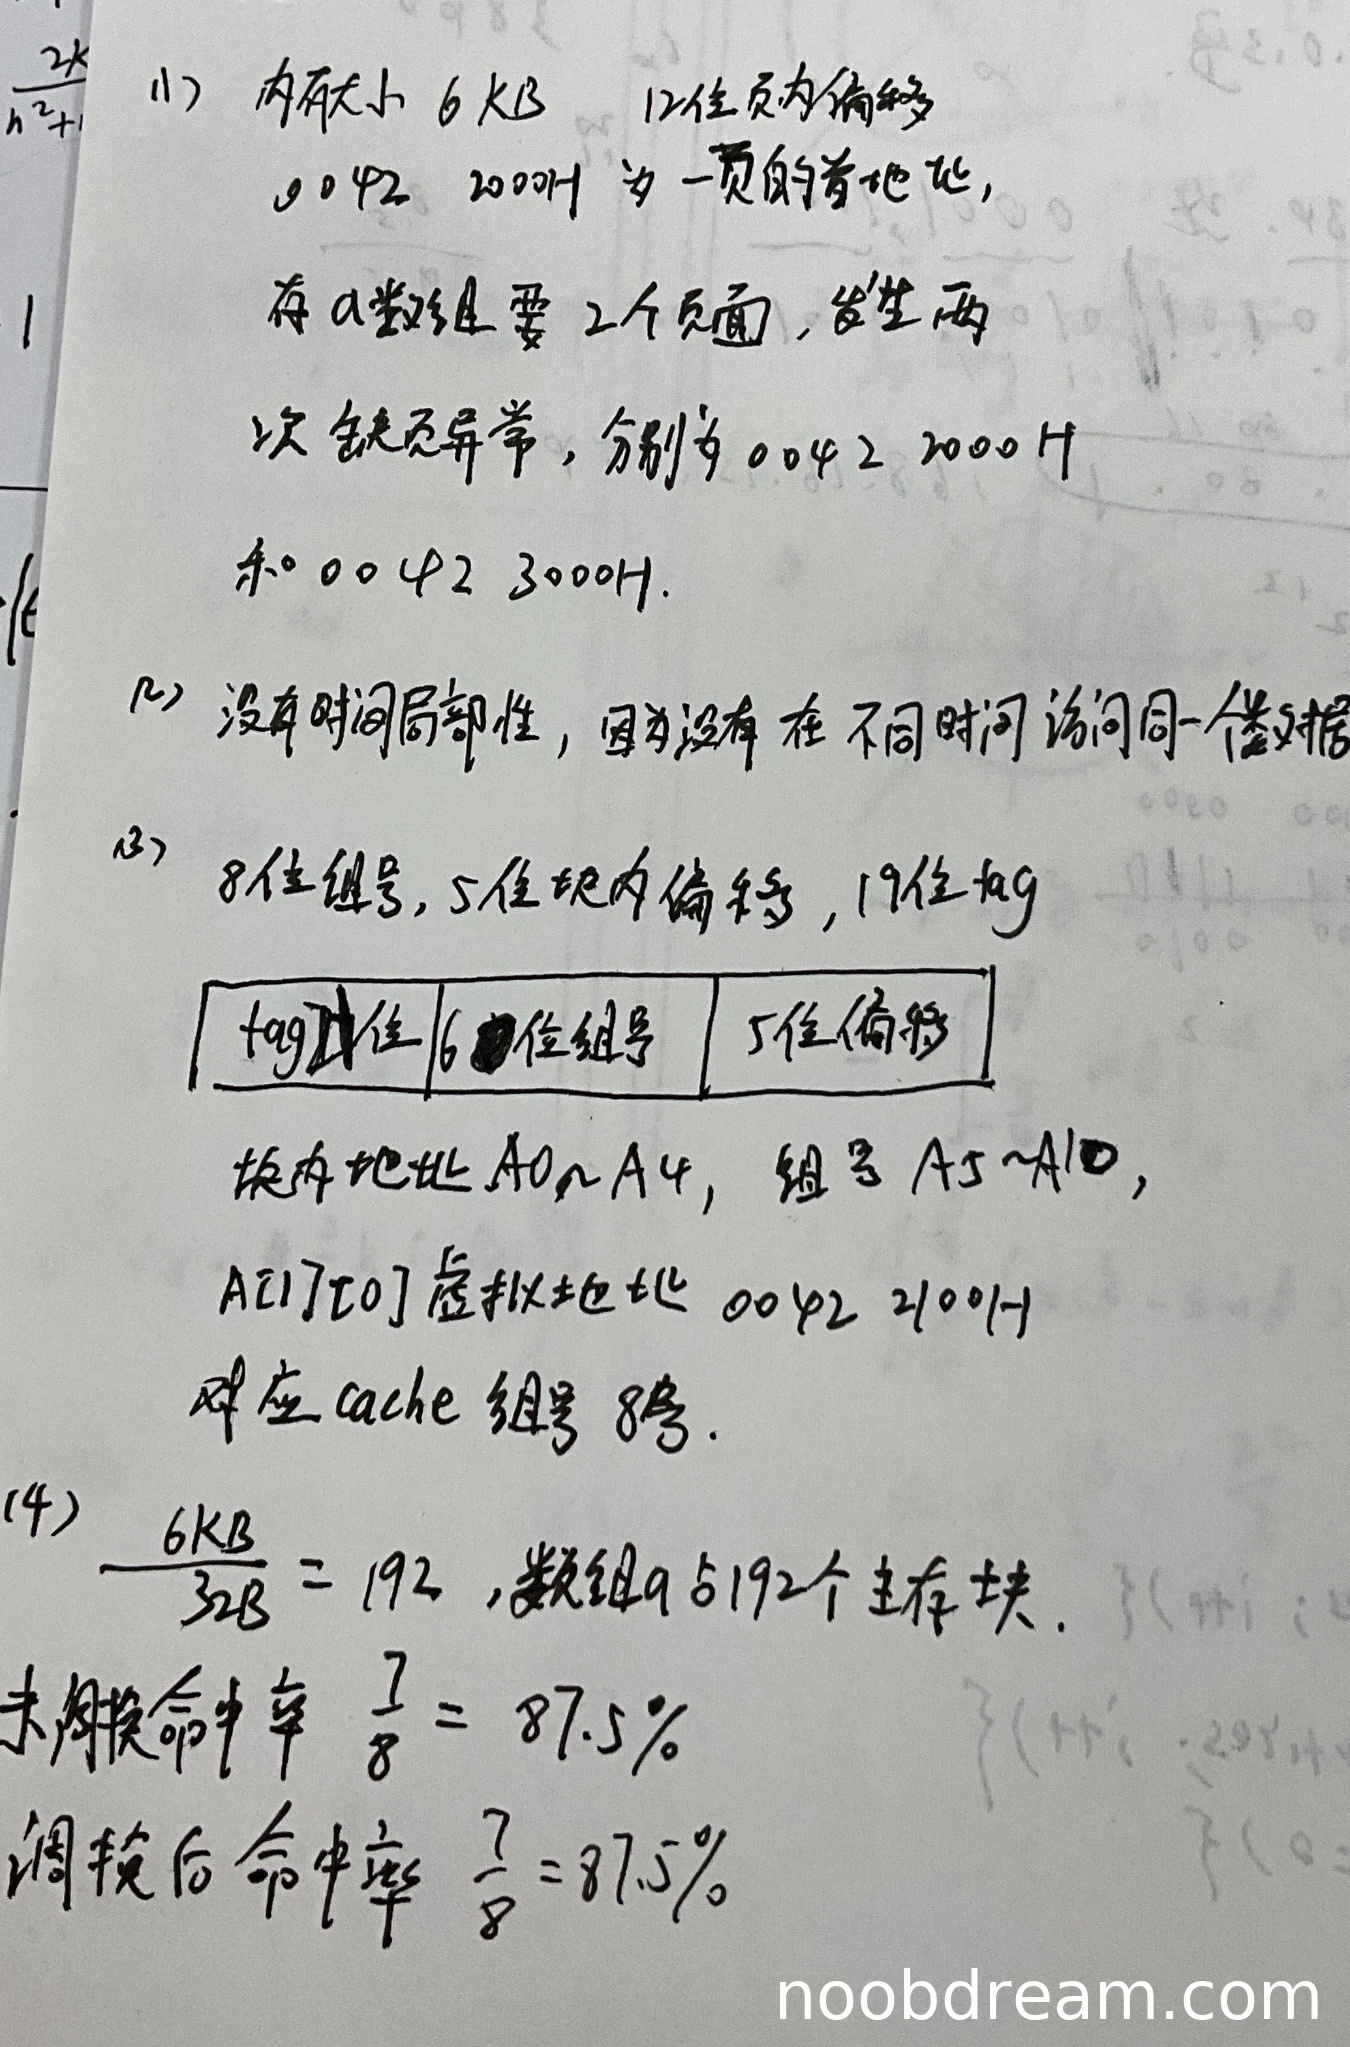 2K
n²+1
1
(1) 内存大小 6KB 12位页内偏移
0042 2000H 为一页的首地址,
存a数组要2个页面,发生两
次缺页异常,分别为 0042 2000H
和 0042 3000H.
(2) 没有时间局部性,因为没有在不同时间访问同一个数据
(3) 8位组号,5位块内偏移,19位tag
tag 21位 6位组号 5位偏移
块内地址A0~A4, 组号A5~A10,
A[1][0]虚拟地址 0042 2100H
对应cache组号 8号.
(4) 6KB
32B = 192 ,数组a占192个主存块.
未调换命中率 7/8 = 87.5%
调换后命中率 7/8 = 87.5%
noobdream.com